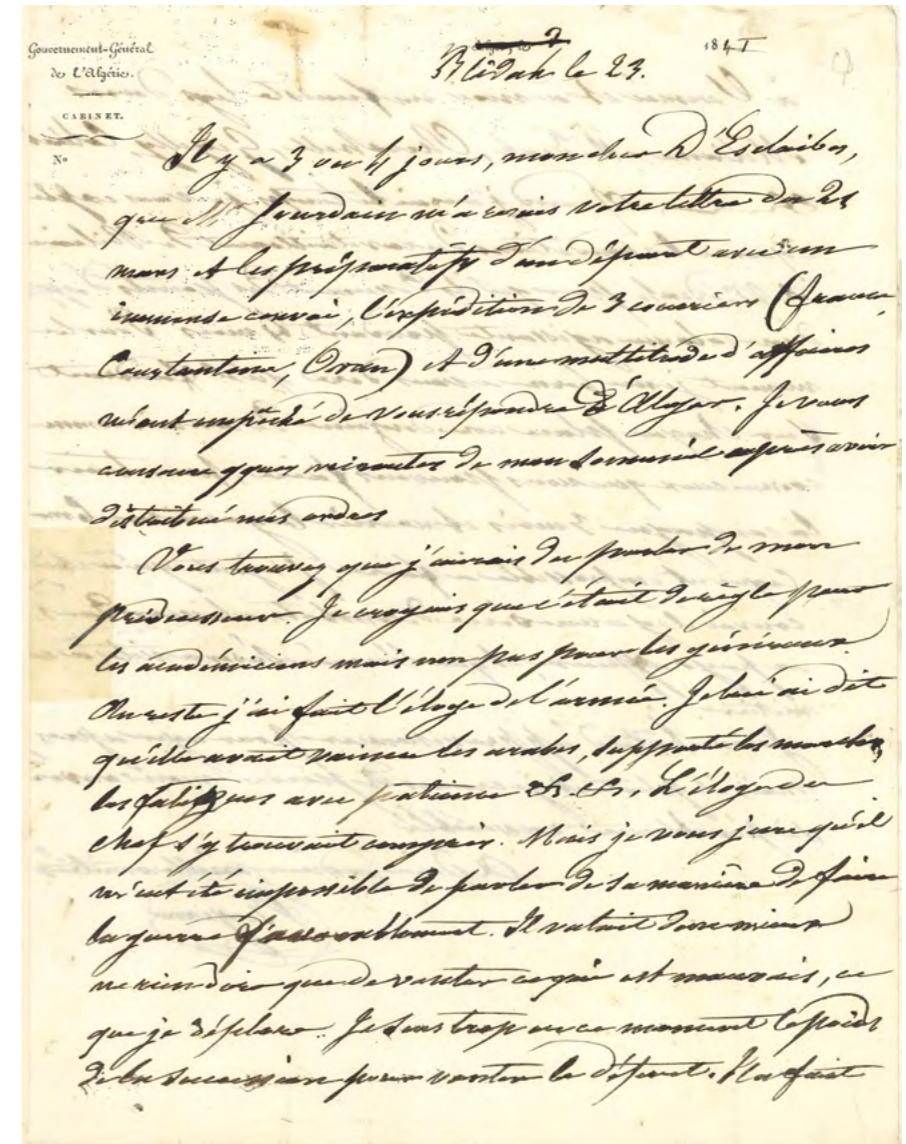 Gouvernement-Général
de L'Algérie.
CABINET.
N°
Blidah le 23. 1841
Il y a 3 ou 4 jours, mon cher D'Esclaibes,
que Mr Jourdain m'a remis votre lettre du 21
mars et les préparatifs d'un départ avec un
immense convoi, l'expédition de 3 courriers (france,
Constantine, Oran) et d'une multitude d'affaires
m'ont empêché de vous répondre d'Alger. Je vous
consacre qques minutes de mon sommeil après avoir
distribué mes ordres
Vous trouvez que j'aurais du parler de mon
prédécesseur. Je croyais que c'était de règle pour
les académiciens mais non pas pour les généraux.
Au reste j'ai fait l'éloge de l'armée. Je lui ai dit
qu'elle avait vaincu les arabes, supporté les marches,
les fatigues avec patience &. &. L'éloge du
chef s'y trouvait compris. Mais je vous jure qu'il
m'eut été impossible de parler de sa manière de faire
la guerre favorablement. Il valait donc mieux
ne rien dire que de vanter ce qui est mauvais, ce
que je déplore. Je sens trop en ce moment le poids
de la succession pour vanter le défunt. Il a fait